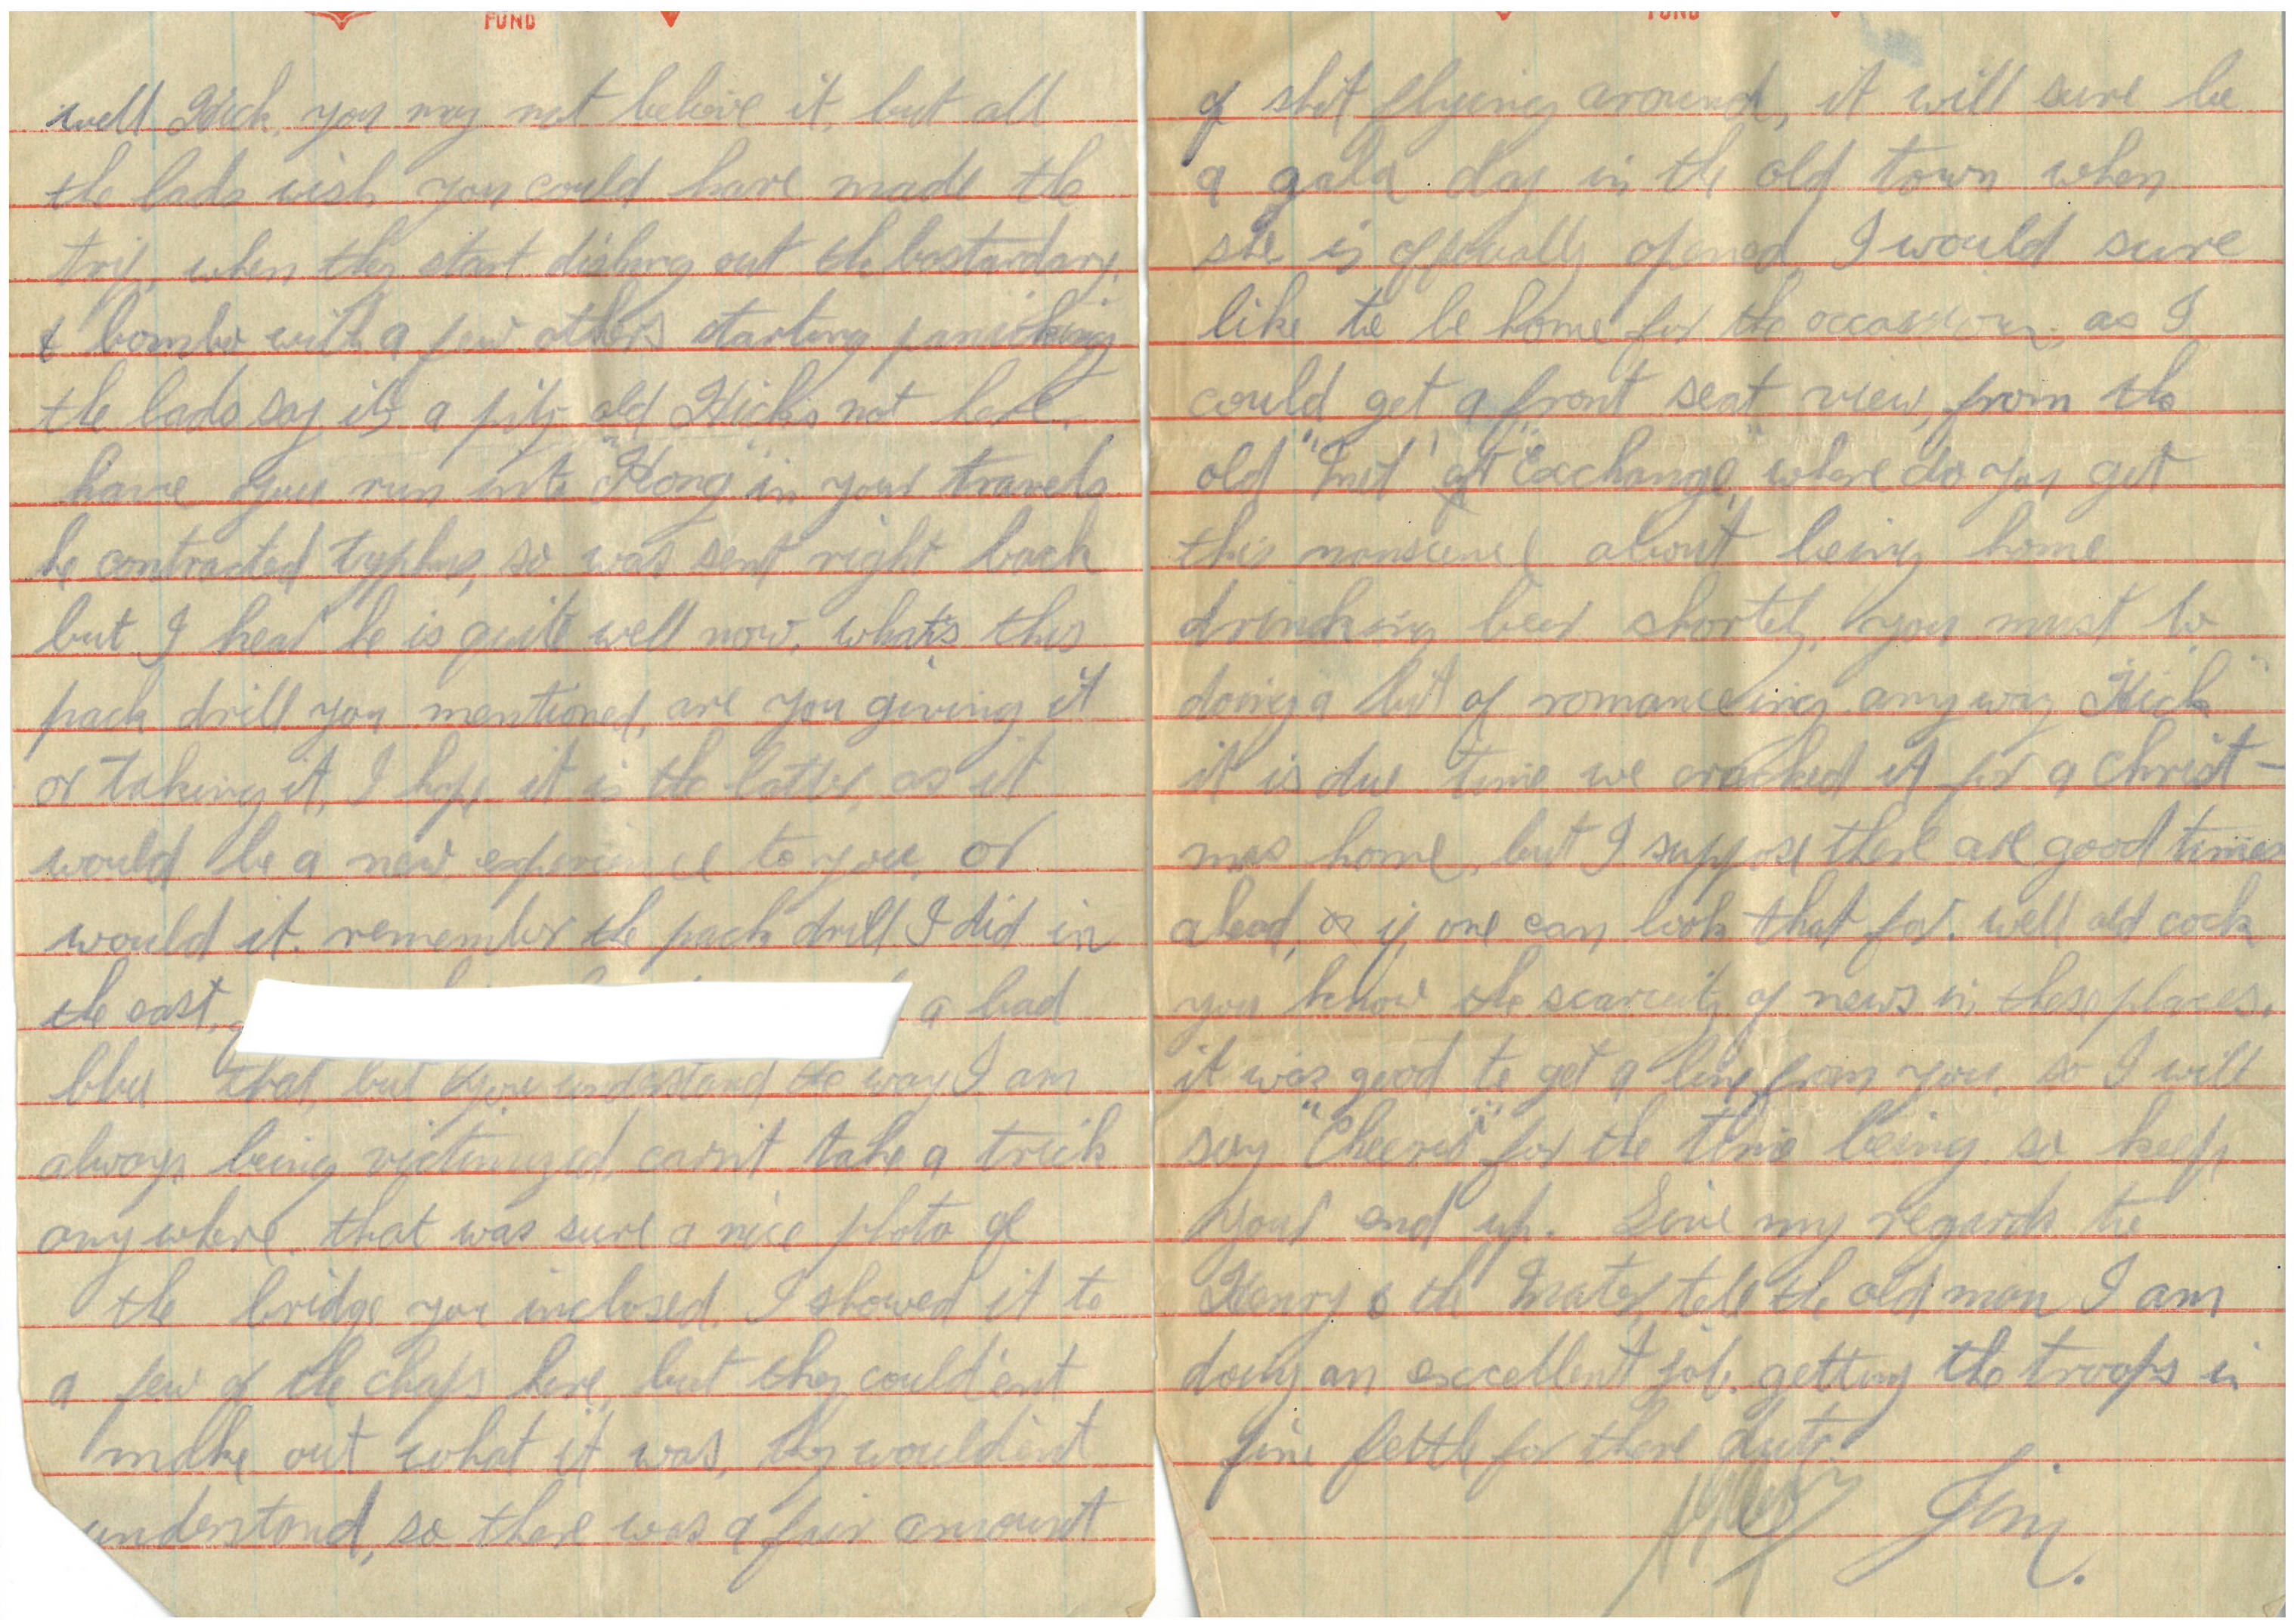 FUND
well Hick, you may not believe it, but all
the lads wish you could have made the
trip, when they start dishing out the bastardary,
& bombs with a few others starting panicking
the lads say its a pity old Hicks not here.
have you run into "Kong" in your travels
he contracted typhus, so was sent right back
but I hear he is quite well now. what's this
pack drill you mentioned, are you giving it
or taking it, I hope it is the latter, as it
would be a new experience to you, or
would it. remember the pack drill I did in
the east, a bad
blue that, but you understand the way I am
always being victimized, carn't take a trick
anywhere. that was sure a nice photo of
the bridge you inclosed, I showed it to
a few of the chaps here, but they could'ent
make out what it was, they would'ent
understand, so there was a fair amount
FUND
of shit flying around, it will sure be
a gala day in the old town when
she is offically opened I would sure
like to be home for the occassion, as I
could get a front seat view, from the
old "Met" at "Exchange", where do you get
this nonscence about being home
drinking beer shortly, you must be
doing a bit of romanceing. anyway Hick
it is due time we cracked it for a Christ-
mas home, but I suppose there are good times
ahead, if one can look that far. well old cock
you know the scarcity of news in these places.
it was good to get a line from you, so I will
say "Cheerio" for the time being. so keep
your end up. Give my regards to
Henry & the Mater, tell the old man I am
doing an excellent job. getting the troops in
fine fettle for there duty.
Jim.